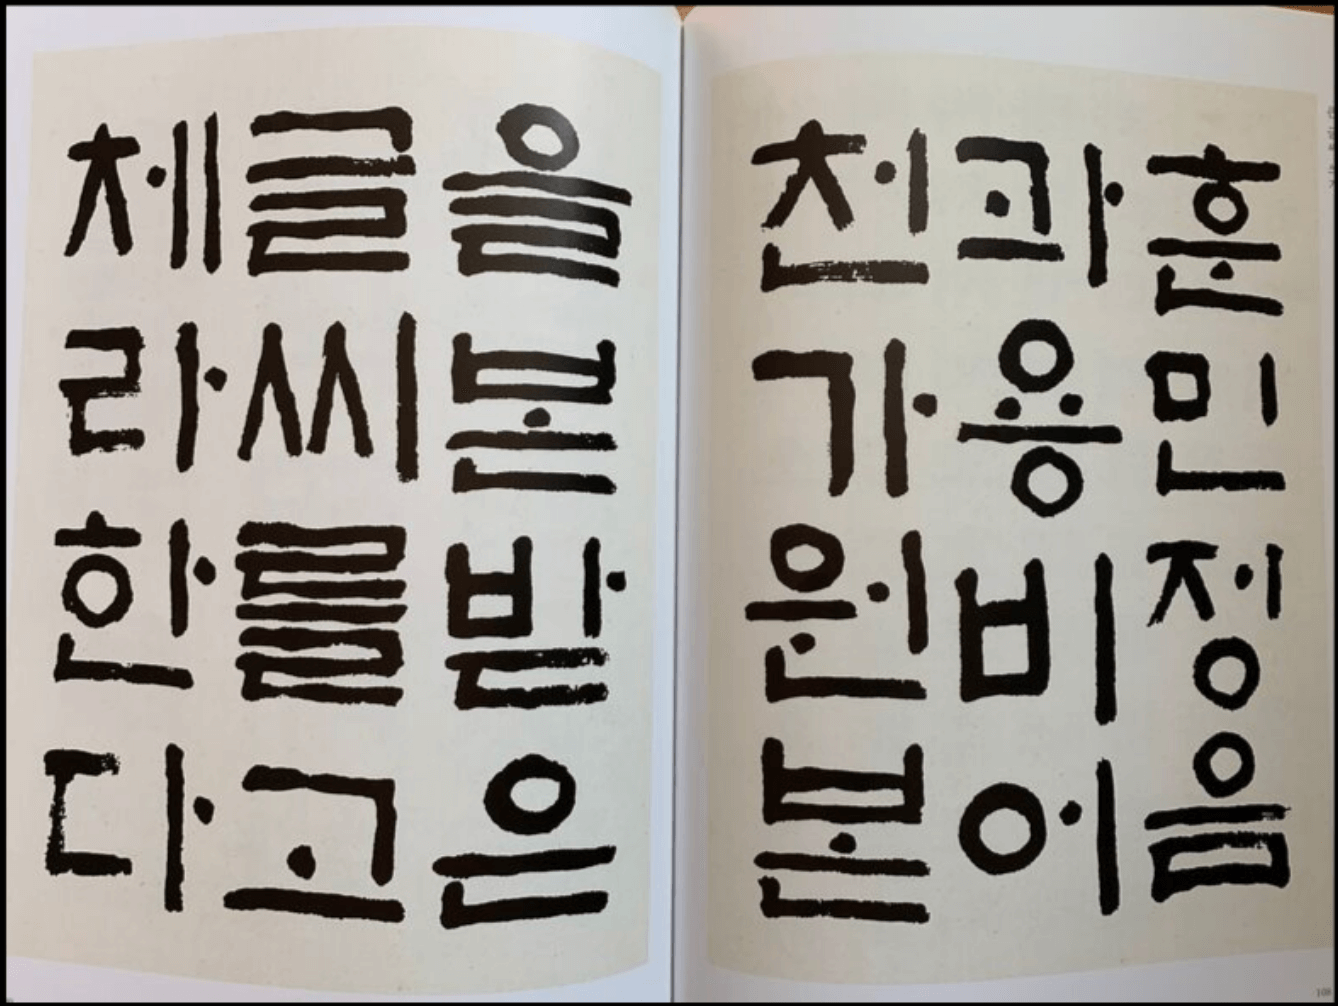 훈민정음
과용비어
천가원본
을본받은
글씨를고
체라한다
108